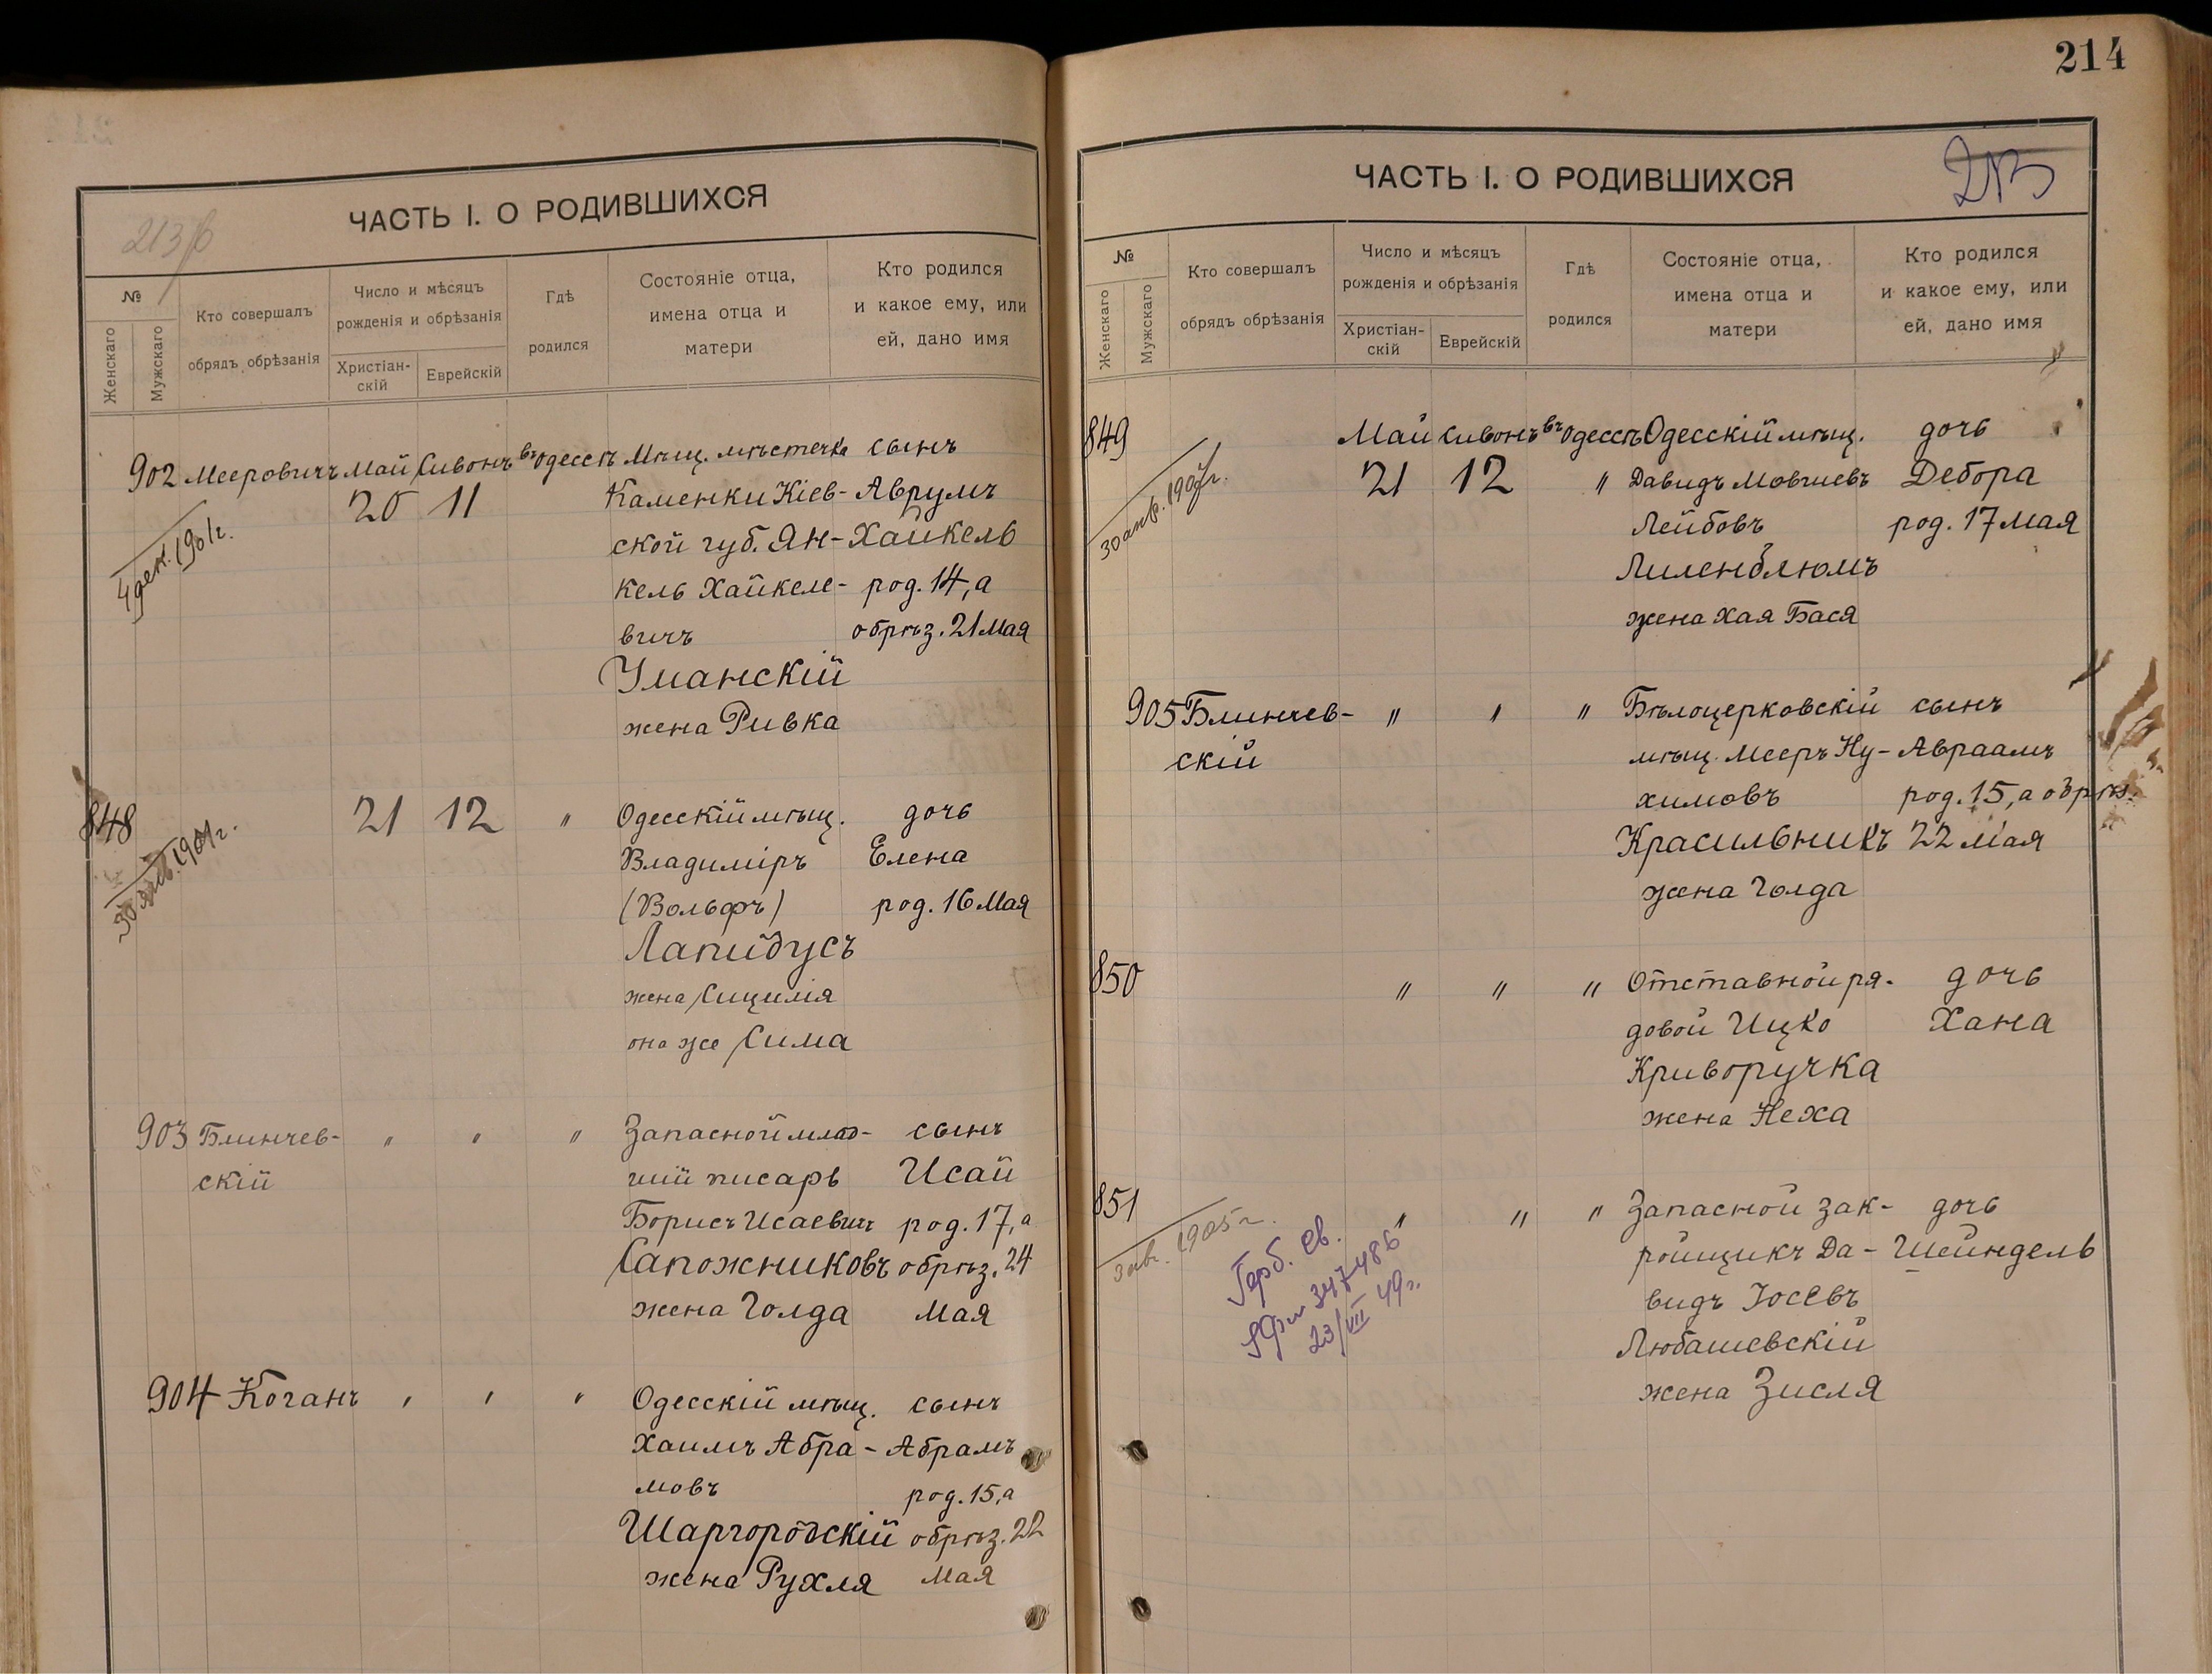 214
ЧАСТЬ I. О РОДИВШИХСЯ
213/б
№
Женскаго
Мужскаго
Кто совершалъ
обрядъ обрѣзанія
Число и мѣсяцъ
рожденія и обрѣзанія
Христіан-
скій
Еврейскій
Гдѣ
родился
Состояніе отца,
имена отца и
матери
Кто родился
и какое ему, или
ей, дано имя
902 Мееровичъ Май Сивонъ въ Одессѣ Мѣщ. мѣстечка сынъ
20 11 Каменки Кіев- Аврумъ
4 дек. 1901г.
ской губ. Ян- Хайкель
кель Хайкеле- род. 14, а
вичъ обрѣз. 21 Мая
Уманскій
жена Ривка
848 21 12 " Одесскій мѣщ. дочь
Владиміръ Елена
(Вольфъ) род. 16 Мая
Лапидусъ
жена Сицилія
она же Сима
903 Блинчев- " " " Запасной млад- сынъ
скій шій писарь Исай
Борисъ Исаевичъ род. 17, а
Сапожниковъ обрѣз. 24
жена Голда Мая
904 Коганъ " " " Одесскій мѣщ. сынъ
Хаимъ Абра- Абрамъ
мовъ род. 15, а
Шаргородскій обрѣз. 22
жена Рухля Мая
ЧАСТЬ I. О РОДИВШИХСЯ
213
№
Женскаго
Мужскаго
Кто совершалъ
обрядъ обрѣзанія
Число и мѣсяцъ
рожденія и обрѣзанія
Христіан-
скій
Еврейскій
Гдѣ
родился
Состояніе отца,
имена отца и
матери
Кто родился
и какое ему, или
ей, дано имя
849 Май Сивонъ въ Одессѣ Одесскій мѣщ. дочь
21 12 " Давидъ Мовшевъ Дебора
Лейбовъ род. 17 Мая
Лиленблюмъ
жена Хая Бася
905 Блинчев- " " " Бѣлоцерковскій сынъ
скій мѣщ. Мееръ Ну- Авраамъ
химовъ род. 15, а обрѣз.
Красильникъ 22 Мая
жена Голда
850 " " " Отставной ря- дочь
довой Ицко Хана
Криворучка
жена Неха
851 " " " Запасной зак- дочь
ройщикъ Да- Шейндель
видъ Іосевъ
Любашевскій
жена Зисля
1905г.
Герб. св.
347486
23/VII 49г.